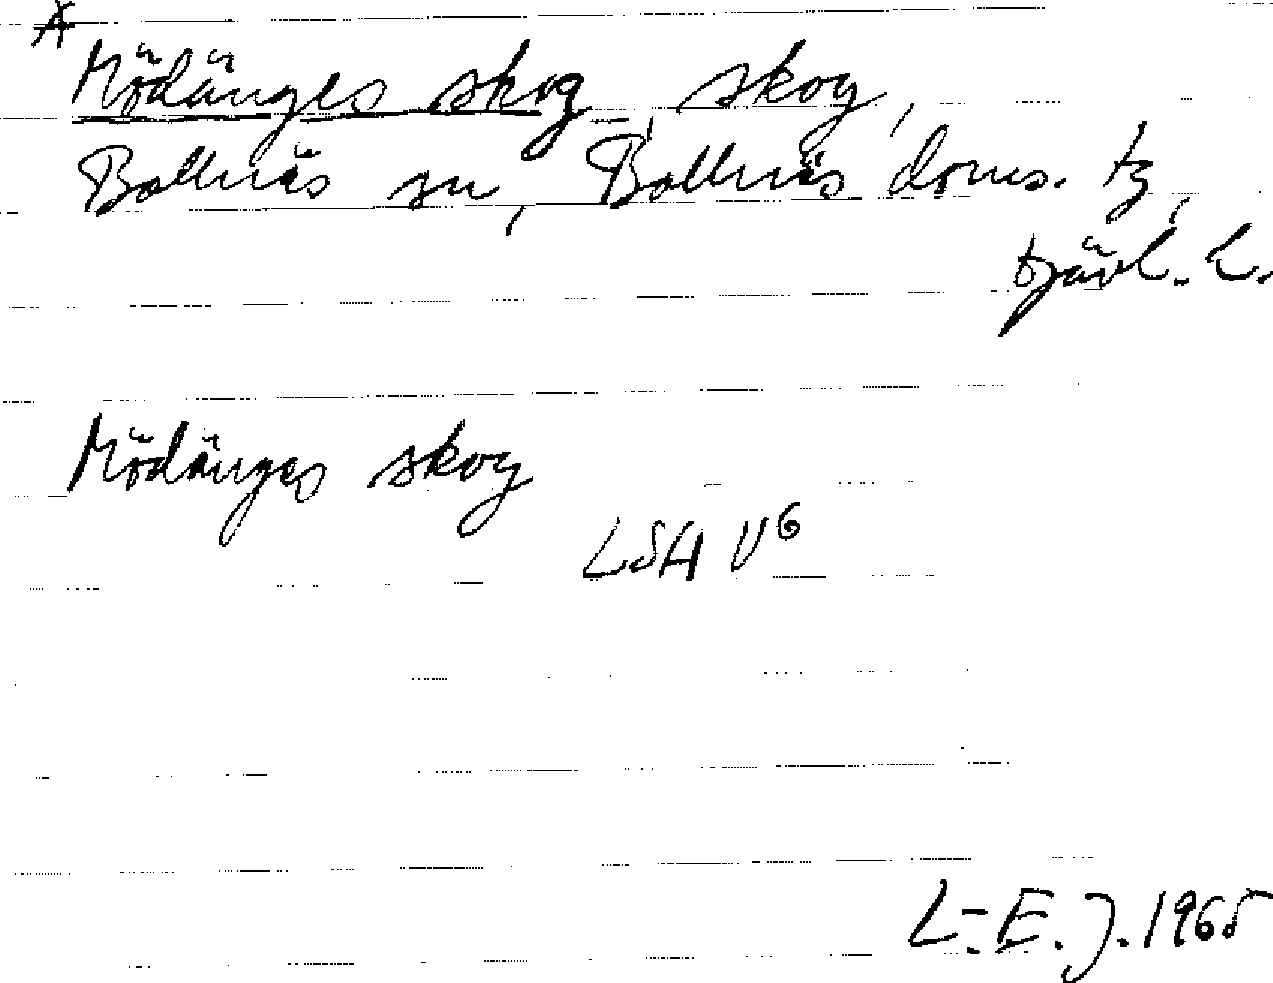 Mödänges skog, skog,
Bollnäs sn, Bollnäs doms. tg,
Gävl. L.
Mödänges skog
LSH V6
L-E. J. 1965